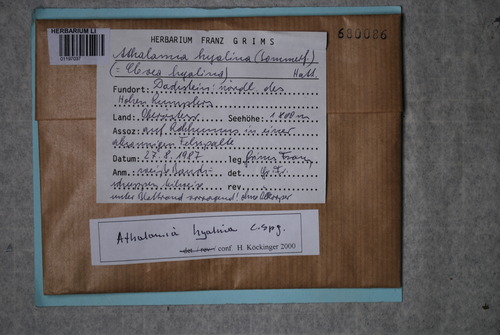 HERBARIUM LI
01197037
HERBARIUM FRANZ GRIMS
680086
Athalamia hyalina (Sommerf.)
(= Clevea hyalina) Hatt.
Fundort: Dachstein: nördl. des
Hohen
Land: Oberösterr. Seehöhe: 1800m
Assoz: auf Rohhumus in einer
Felsspalte
Datum: 27.8.1987 leg. Grims Franz
Anm. det. Gr. Fr.
rev.
unter
Athalamia hyalina c. spg.
det. rev. conf. H. Köckinger 2000